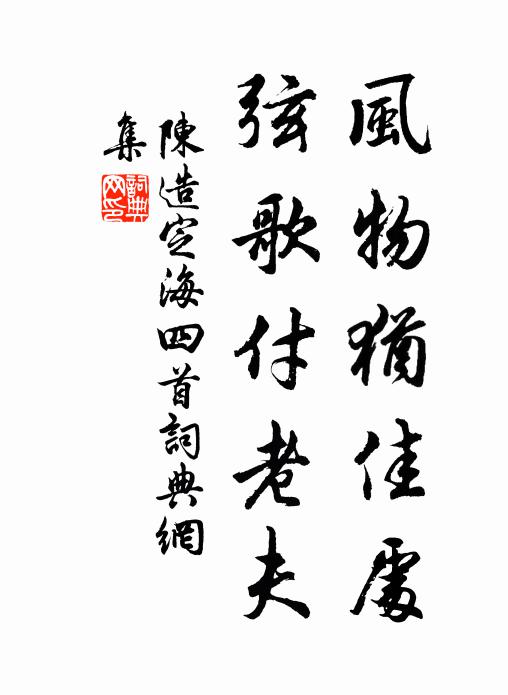 風物猶佳處
弦歌付老夫
陳造定海四首詞典網
集
詞典網印